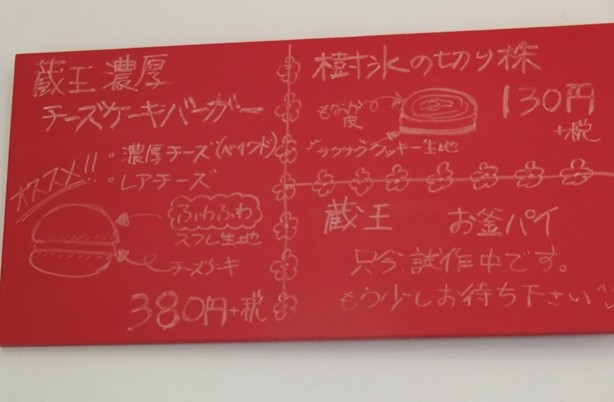 蔵王濃厚
チーズケーキバーガー
オススメ!!
・濃厚チーズ(ベイクド)
・レアチーズ
ふわふわ
スフレ生地
チーズケーキ
380円+税
樹氷の切り株
もなか皮
サクサククッキー生地
130円
+税
蔵王 お釜パイ
只今試作中です。
もう少しお待ち下さい